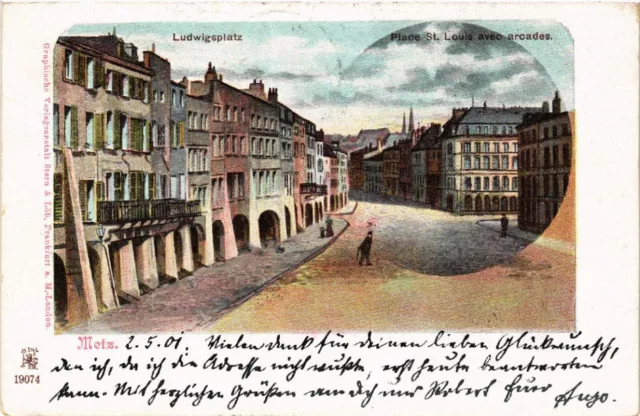 Ludwigsplatz
Place St. Louis avec arcades.
Graphische Verlagsanstalt Stern & Löb, Frankfurt a. M.-London.
Metz. 2.5.01. Vielen Dank für deinen lieben Glückwunsch,
den ich, da ich die Adresse nicht wußte, erst heute beantworten
kann. Mit herzlichen Grüßen an dich und Robert Euer
19074